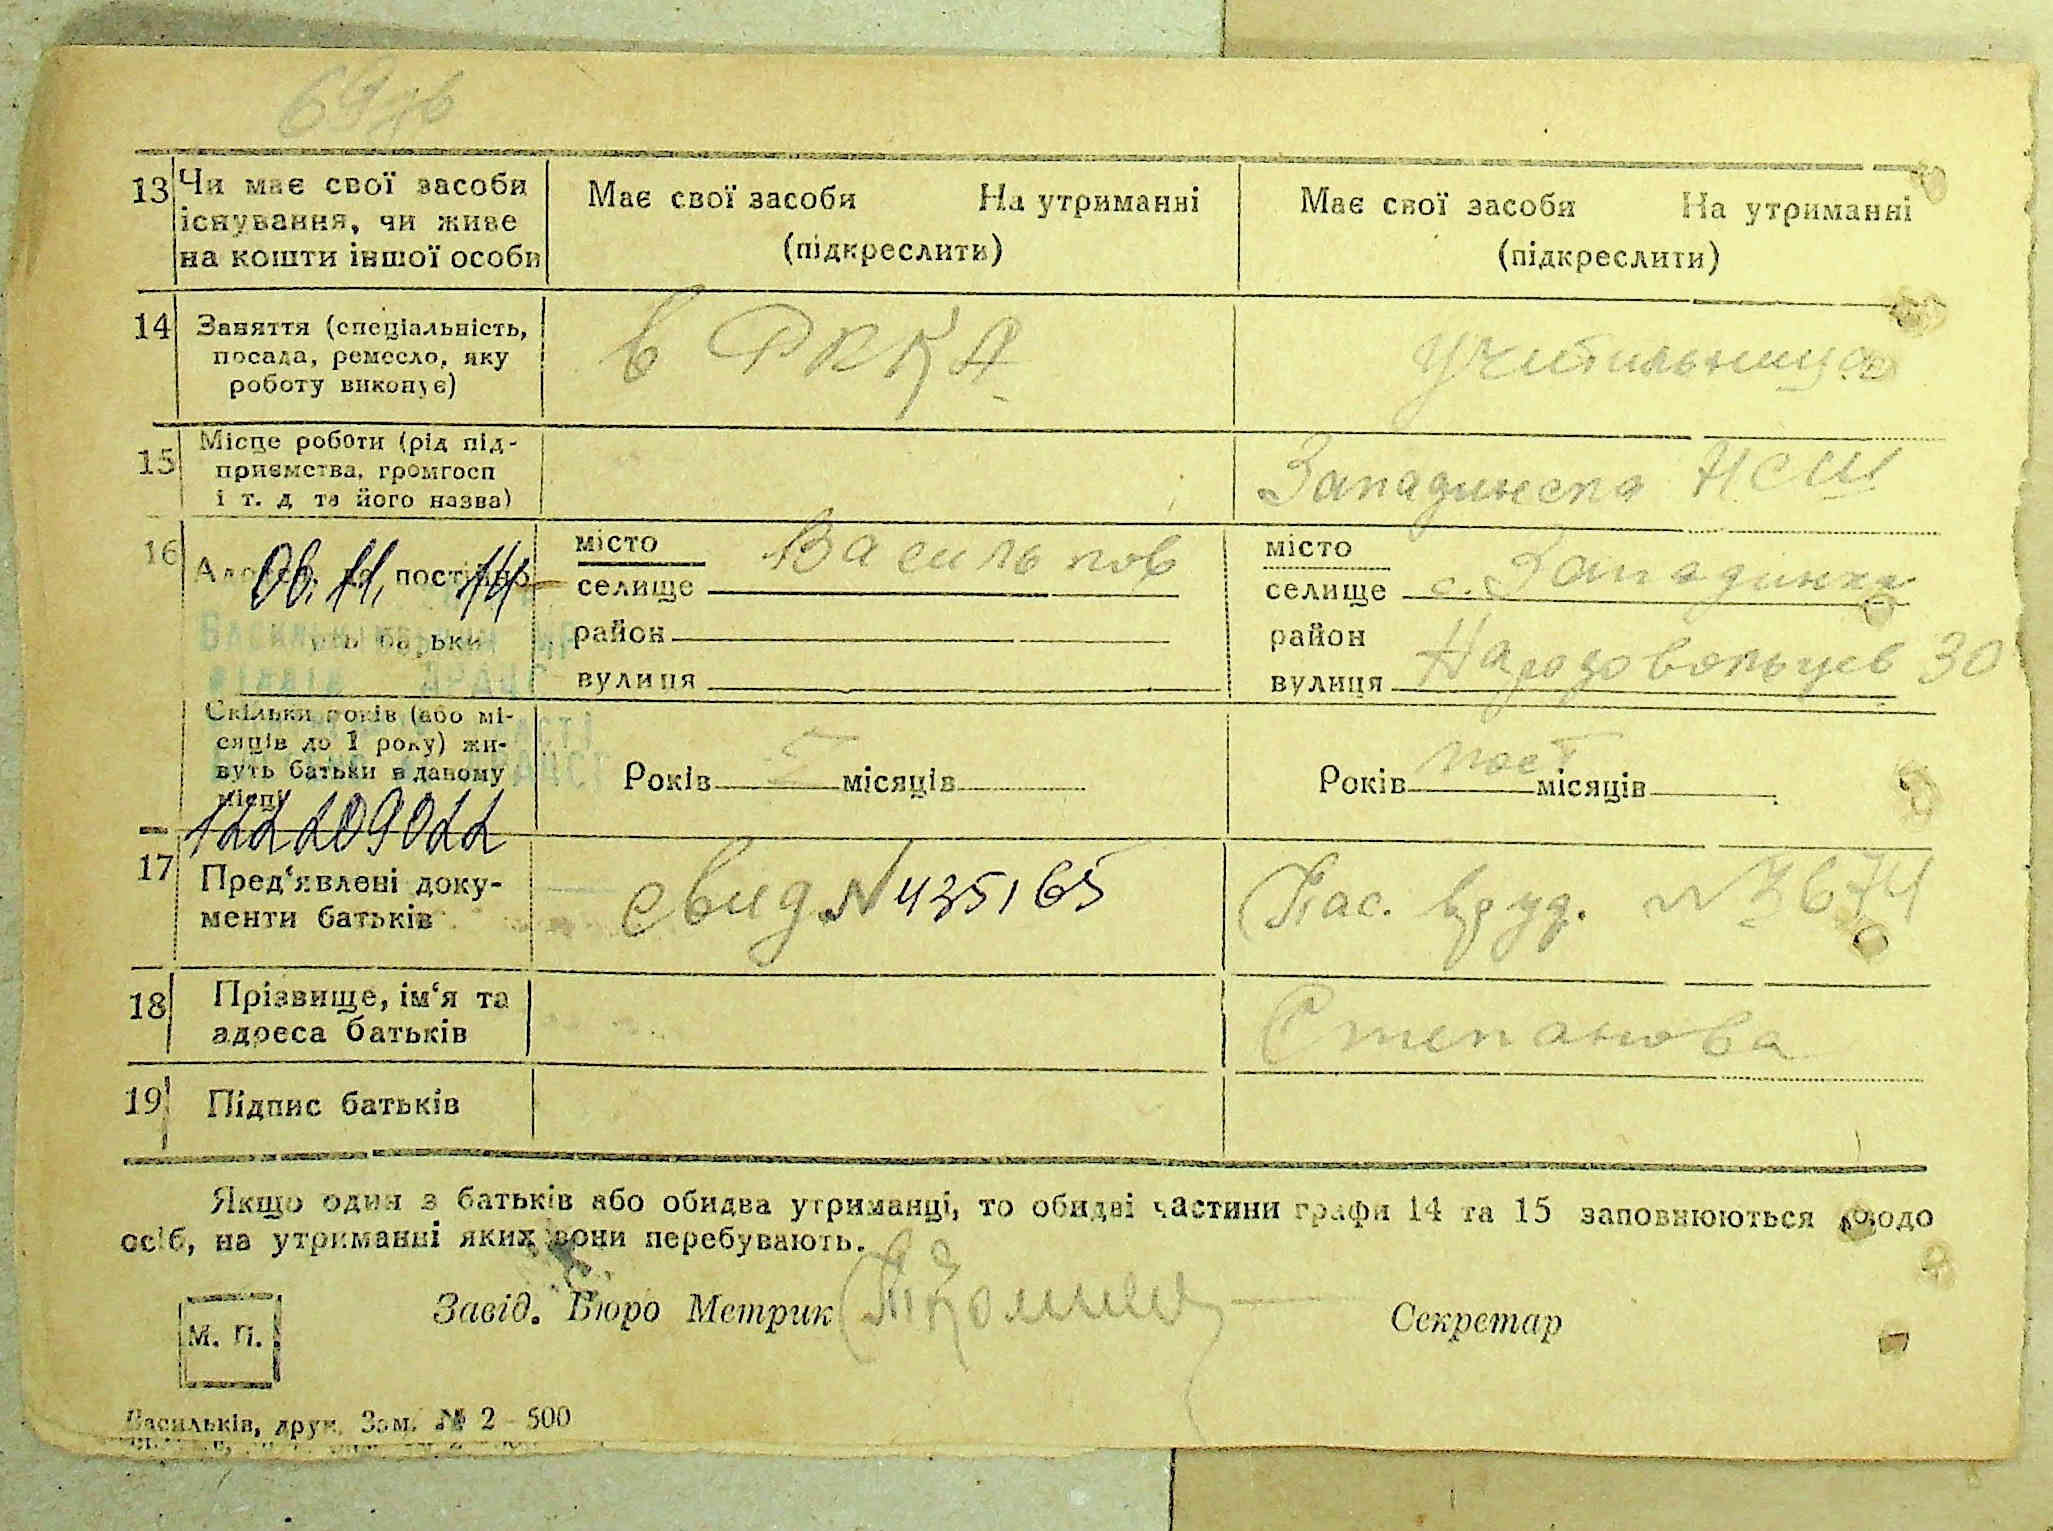 69
13 Чи має свої засоби існування, чи живе на кошти іншої особи
Має свої засоби На утриманні
(підкреслити)
Має свої засоби На утриманні
(підкреслити)
14 Заняття (спеціальність, посада, ремесло, яку роботу виконує)
в РККА
учительница
15 Місце роботи (рід підприємства, громгосп і т. д та його назва)
Западинска НСШ
16 постійно
батьки
06.11.14
місто Васильков
селище
район
вулиця
місто
селище с. Западинка
район
вулиця Народовольцев 30
Скільки років (або місяців до 1 року) живуть батьки в даному місці
Років 5 місяців
Років пост місяців
122209022
17 Пред‘явлені документи батьків
свид. № 435165
Пас. вруд. № 3674
18 Прізвище, ім‘я та адреса батьків
Степанова
19 Підпис батьків
Якщо один з батьків або обидва утриманці, то обидві частини графи 14 та 15 заповнюються щодо
осіб, на утриманні яких вони перебувають.
М. П.
Завід. Бюро Метрик
Секретар
Васильків, друк. Зам. № 2 - 500